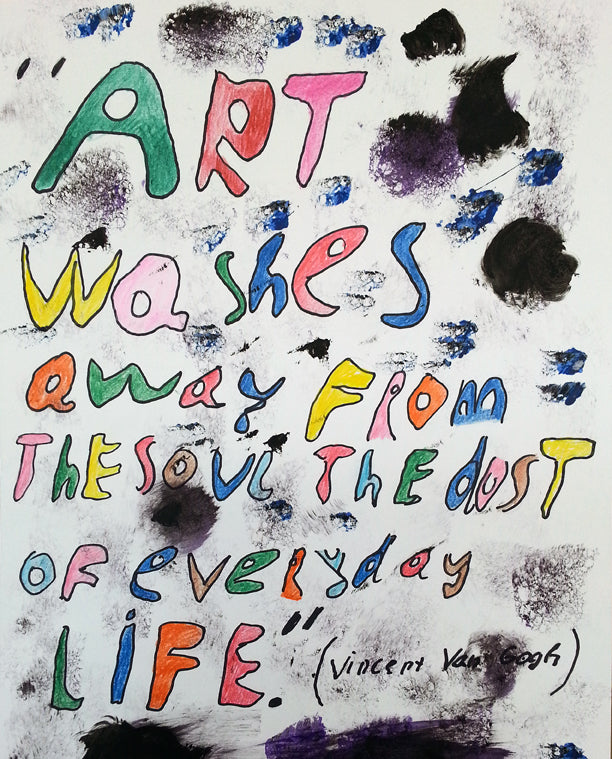 "ART
washes
away From
THE SOUL THE dUST
OF everyday
LiFE." (Vincent Van Gogh)